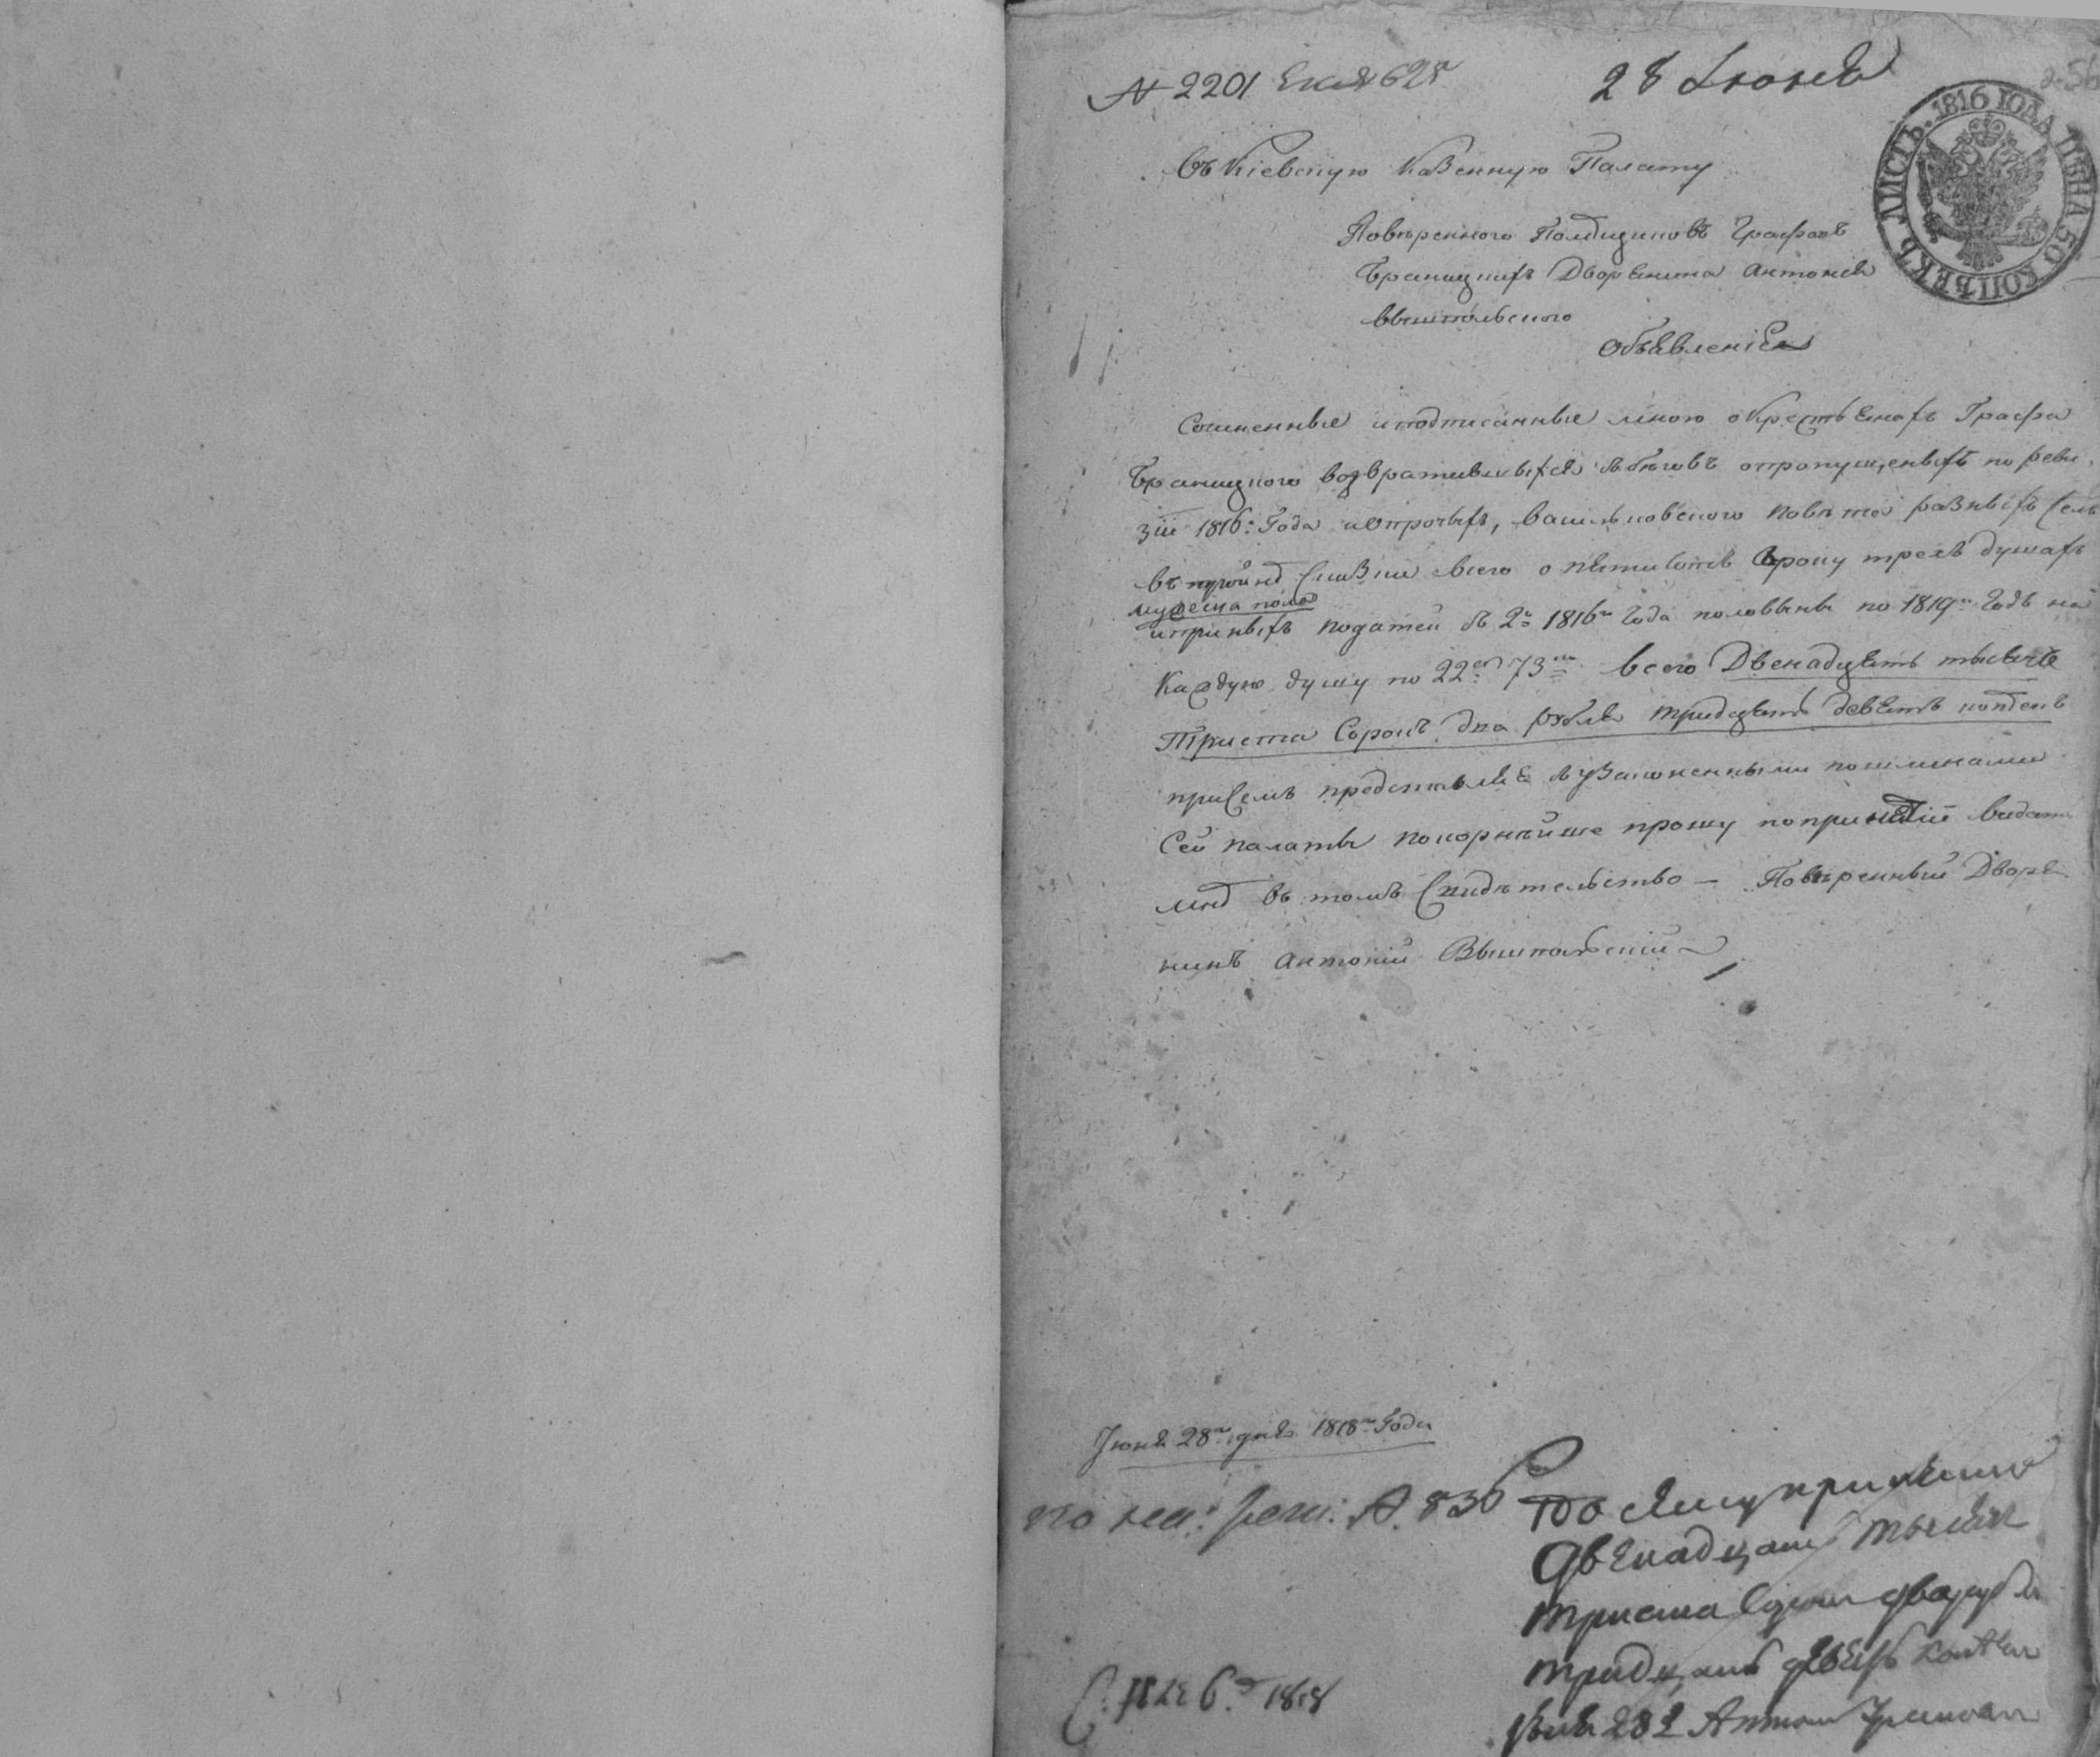 № 2201
28 Июня
ЛИСТЪ. 1816 ГОДА ЦѢНА 50 КОПѢЕКЪ
Въ Кіевскую Казенную Палату
Повѣреннаго Помѣщиковъ Графовъ
Браницкихъ Дворянина Антонія
Вышпольского
Объявленіе
Сочиненные и подписанные мною о крестьянахъ Графа
Браницкого возвратившихся съ бѣговъ о пропущеныхъ по реви
зіи 1816: Года и о прочихъ, Васильковского Повѣта разныхъ Селъ
всего о пятистахъ сороку трехъ душахъ
мужеска пола
податей съ 2й 1816го Года половыны по 1819й Годъ на
каждую душу по 22 р 73 к всего Двенадцять тысячь
Триста Сорокъ два рубля тридцять девять копѣекъ
при Семъ представляя съ узаконенными пошлинами
Сей палаты покорнѣйше прошу по принятіи видать
мнѣ въ томъ Свидѣтельство — Повѣренный Дворя
нинъ Антоній Вышпольскій
Июня 28го дня 1818го Года
836
принято
Двенадцать тысячъ
триста сорок два рубли
тридцать девять копѣек
1818